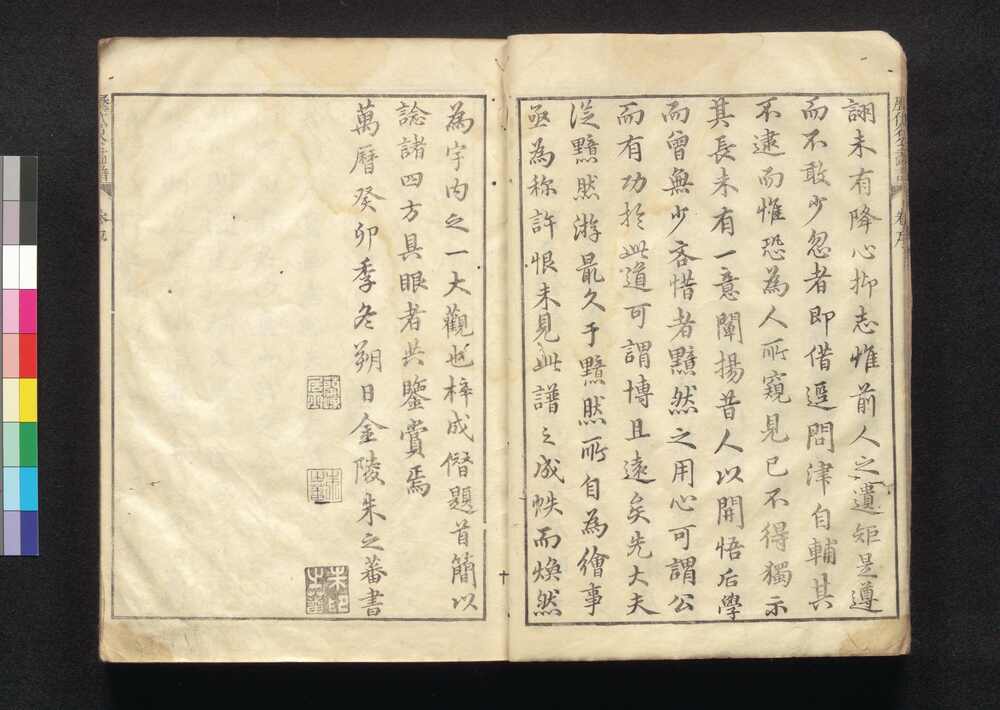 詡未有降心抑志惟前人之遺矩是遵
而不敢少忽者即借逕問津自輔其
不逮而惟恐為人所窺見已不得獨示
其長未有一意闡揚昔人以開悟后學
而曾無少吝惜者黯然之用心可謂公
而有功於此道可謂博且遠矣先大夫
從黯然游最久于黯然所自為繪事
亟為称許恨未見此譜之成帙而煥然
為宇内之一大觀也梓成僭題首簡以
諗諸四方具眼者共鑒賞焉
萬曆癸卯季冬朔日金陵朱之蕃書